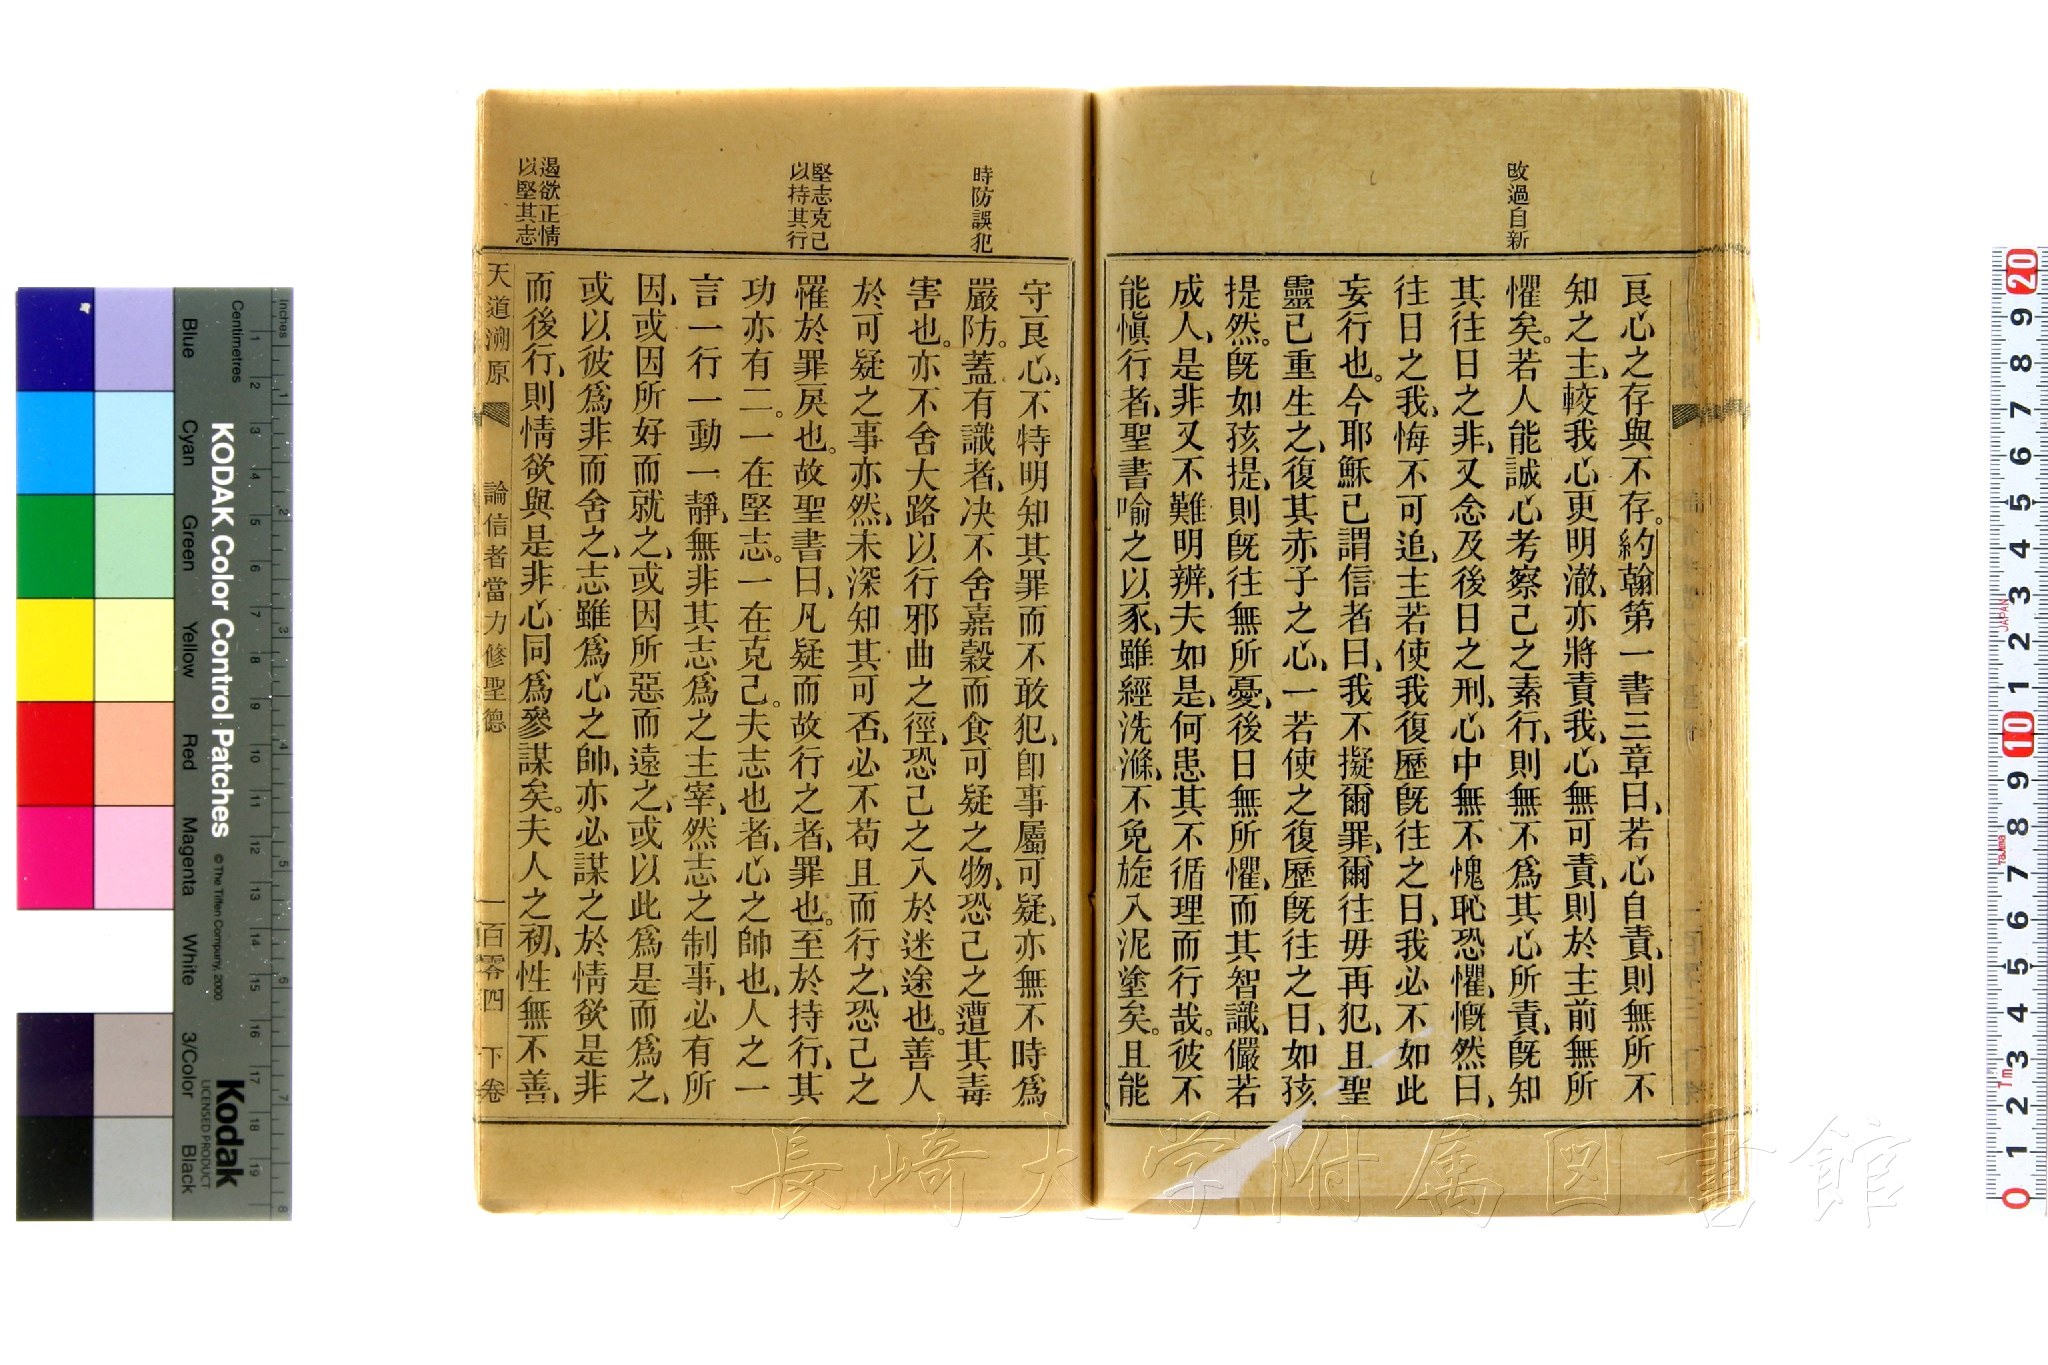 攺過自新
良心之存與不存。約翰第一書三章曰、若心自責、則無所不
知之主、較我心更明澈、亦將責我、心無可責、則於主前無所
懼矣。若人能誠心考察己之素行、則無不爲其心所責、旣知
其往日之非、又念及後日之刑、心中無不愧恥恐懼、慨然曰、
往日之我、悔不可追、主若使我復歷旣往之日、我必不如此
妄行也。今耶穌已謂信者曰、我不擬爾罪、爾往毋再犯、且聖
靈已重生之、復其赤子之心、一若使之復歷旣往之日、如孩
提然。旣如孩提、則旣往無所憂、後日無所懼、而其智識、儼若
成人、是非又不難明辨、夫如是、何患其不循理而行哉。彼不
能愼行者、聖書喻之以豕、雖經洗滌、不免旋入泥塗矣。且能
時防誤犯
堅志克己
以持其行
遏欲正情
以堅其志
守良心、不特明知其罪而不敢犯、卽事屬可疑、亦無不時爲
嚴防。蓋有識者、決不舍嘉穀而食可疑之物、恐己之遭其毒
害也。亦不舍大路以行邪曲之徑、恐己之入於迷途也。善人
於可疑之事亦然、未深知其可否、必不苟且而行之、恐己之
罹於罪戾也。故聖書曰、凡疑而故行之者、罪也。至於持行、其
功亦有二。一在堅志。一在克己。夫志也者、心之帥也、人之一
言一行一動一靜、無非其志爲之主宰、然志之制事、必有所
因、或因所好而就之、或因所惡而遠之、或以此爲是而爲之、
或以彼爲非而舍之、志雖爲心之帥、亦必謀之於情欲是非
而後行、則情欲與是非心同爲參謀矣。夫人之初、性無不善、
天道溯原 論信者當力修聖德 一百零四 下卷
KODAK Color Control Patches
© The Tiffen Company, 2000
Kodak
LICENSED PRODUCT
Inches
Centimetres
Blue
Cyan
Green
Yellow
Red
Magenta
White
3/Color
Black
JAPAN
長崎大学附属図書館